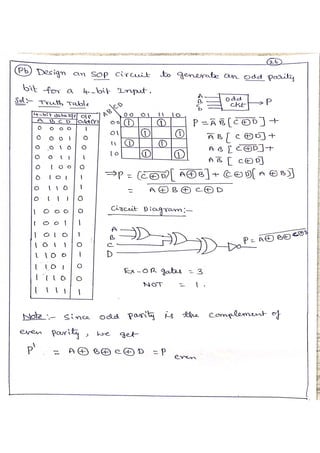 26
Pb Design an SOP circuit to generate an odd parity
bit for a 4-bit Input.
Sol:- Truth Table
4-bit data I/P O/P
A B C D Odd(P)
0 0 0 0 1
0 0 0 1 0
0 0 1 0 0
0 0 1 1 1
0 1 0 0 0
0 1 0 1 1
0 1 1 0 1
0 1 1 1 0
1 0 0 0 0
1 0 0 1 1
1 0 1 0 1
1 0 1 1 0
1 1 0 0 1
1 1 0 1 0
1 1 1 0 0
1 1 1 1 1
AB\CD 00 01 11 10
00 1 1
01 1 1
11 1 1
10 1 1
A
B
C
D
odd
ckt
P
P = A̅ B̅ [C̅⊕̅D̅] +
A̅ B [C⊕D] +
A B [C̅⊕̅D̅] +
A B̅ [C⊕D]
⇒ P = (C̅⊕̅D̅) [A̅⊕̅B̅] + (C⊕D)[A⊕B]
= A̅⊕̅B̅⊕̅C̅⊕̅D̅
Circuit Diagram:-
A
B
C
D
Ex-OR gates = 3
NOT = 1.
Note:- Since odd parity is the complement of
even parity, we get
P' = A⊕B⊕C⊕D = P even